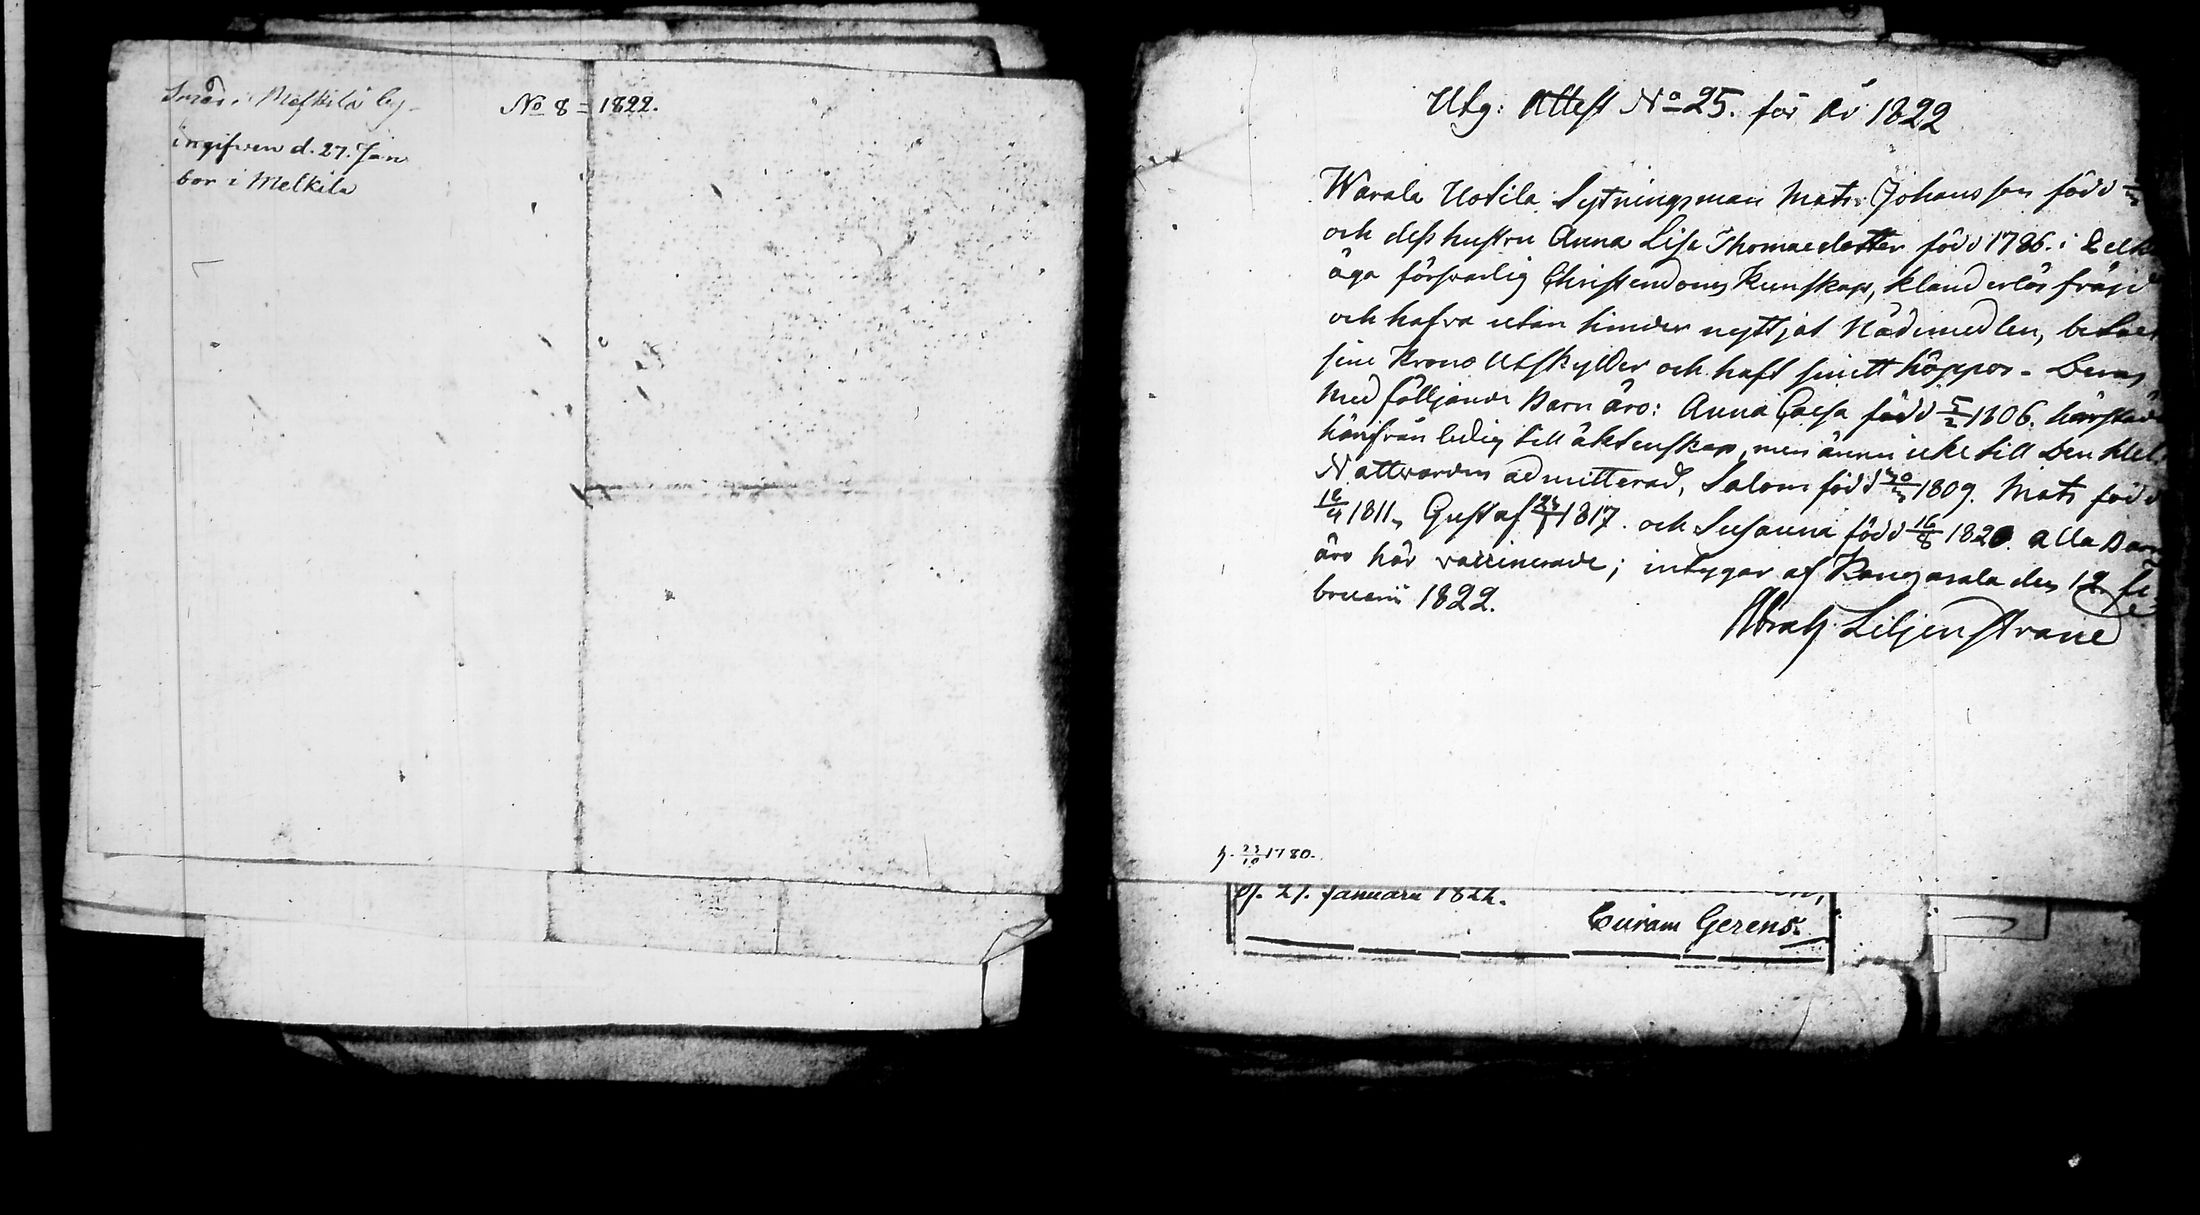 i Melkilä by
ingifwen d. 27. Jan
bor i Melkila
No 8 = 1822.
Utg: Attest No 25. för År 1822
Warala Uotila Sytningsman Mats Johansson född
och dess hustru Anna Lisa Thomaedotter född 1786. i
äga försvarlig Christendoms kunskap, klanderlös fräjd
och hafva utan hinder nyttjat Nådemedlen,
sine Krono Utskylder och haft sin ett köppor - Deras
med följande Barn äro: Anna Cajsa född 5/2 1806. härstädes
härifrån ledig till äktenskap, men ännu icke till Den Hel.
Nattvarden admitterad, Salom född 1809. Mats född
16/4 1811, Gustaf 23/1 1817. och Susanna född 16/8 1820. Alla Barn
äro här vaccinerade; intygar af Kangasala den 12 fe-
bruarii 1822.
Abrah: Liljenstrand
h. 23/10 1780.
d. 27. Januarii 1822.
Curam Gerens.